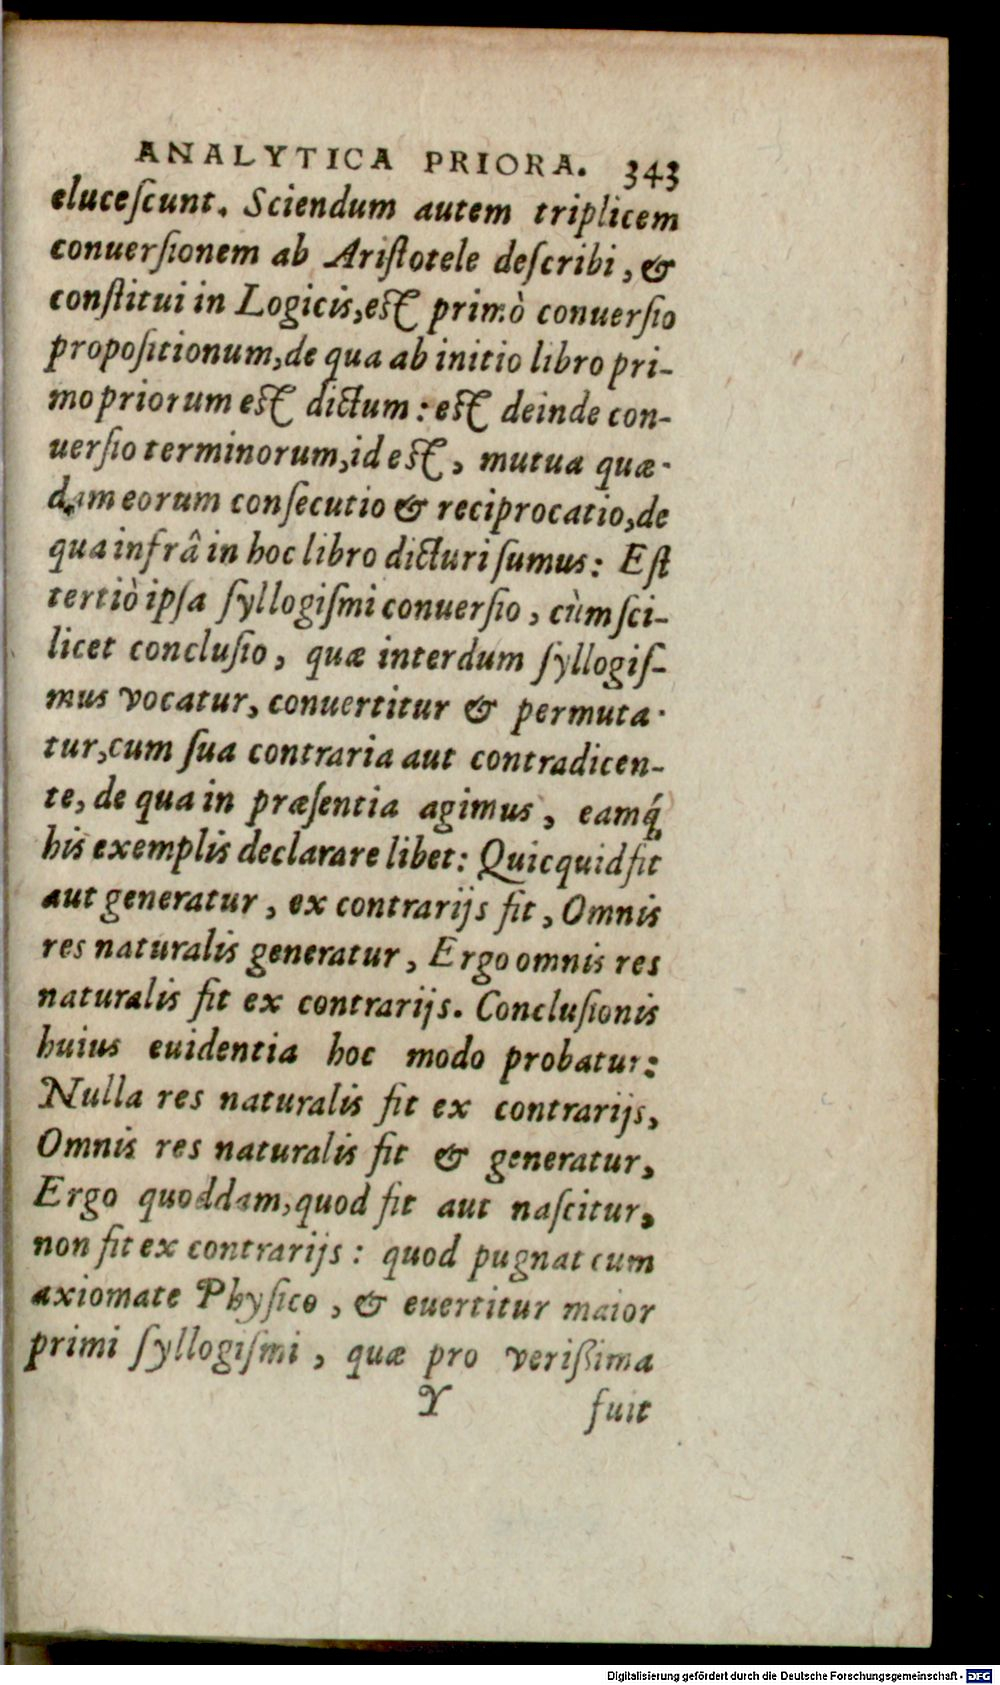 ANALYTICA PRIORA. 343
eluceſcunt. Sciendum autem triplicem
conuerſionem ab Ariſtotele deſcribi, &
conſtitui in Logicis, eſt primò conuerſio
propoſitionum, de qua ab initio libro pri-
mo priorum eſt dictum: eſt deinde con-
uerſio terminorum, id eſt, mutua quæ-
dam eorum conſecutio & reciprocatio, de
qua infrâ in hoc libro dicturi ſumus: Eſt
tertiò ipſa ſyllogiſmi conuerſio, cùm ſci-
licet concluſio, quæ interdum ſyllogiſ-
mus vocatur, conuertitur & permuta-
tur, cum ſua contraria aut contradicen-
te, de qua in præſentia agimus, eamq́
his exemplis declarare libet: Quicquid fit
aut generatur, ex contrarijs fit, Omnis
res naturalis generatur, Ergo omnis res
naturalis fit ex contrarijs. Concluſionis
huius euidentia hoc modo probatur:
Nulla res naturalis fit ex contrarijs,
Omnis res naturalis fit & generatur,
Ergo quoddam, quod fit aut naſcitur,
non fit ex contrarijs: quod pugnat cum
axiomate Phyſico, & euertitur maior
primi ſyllogiſmi, quæ pro verißima
Y fuit
Digitalisierung gefördert durch die Deutsche Forschungsgemeinschaft - DFG